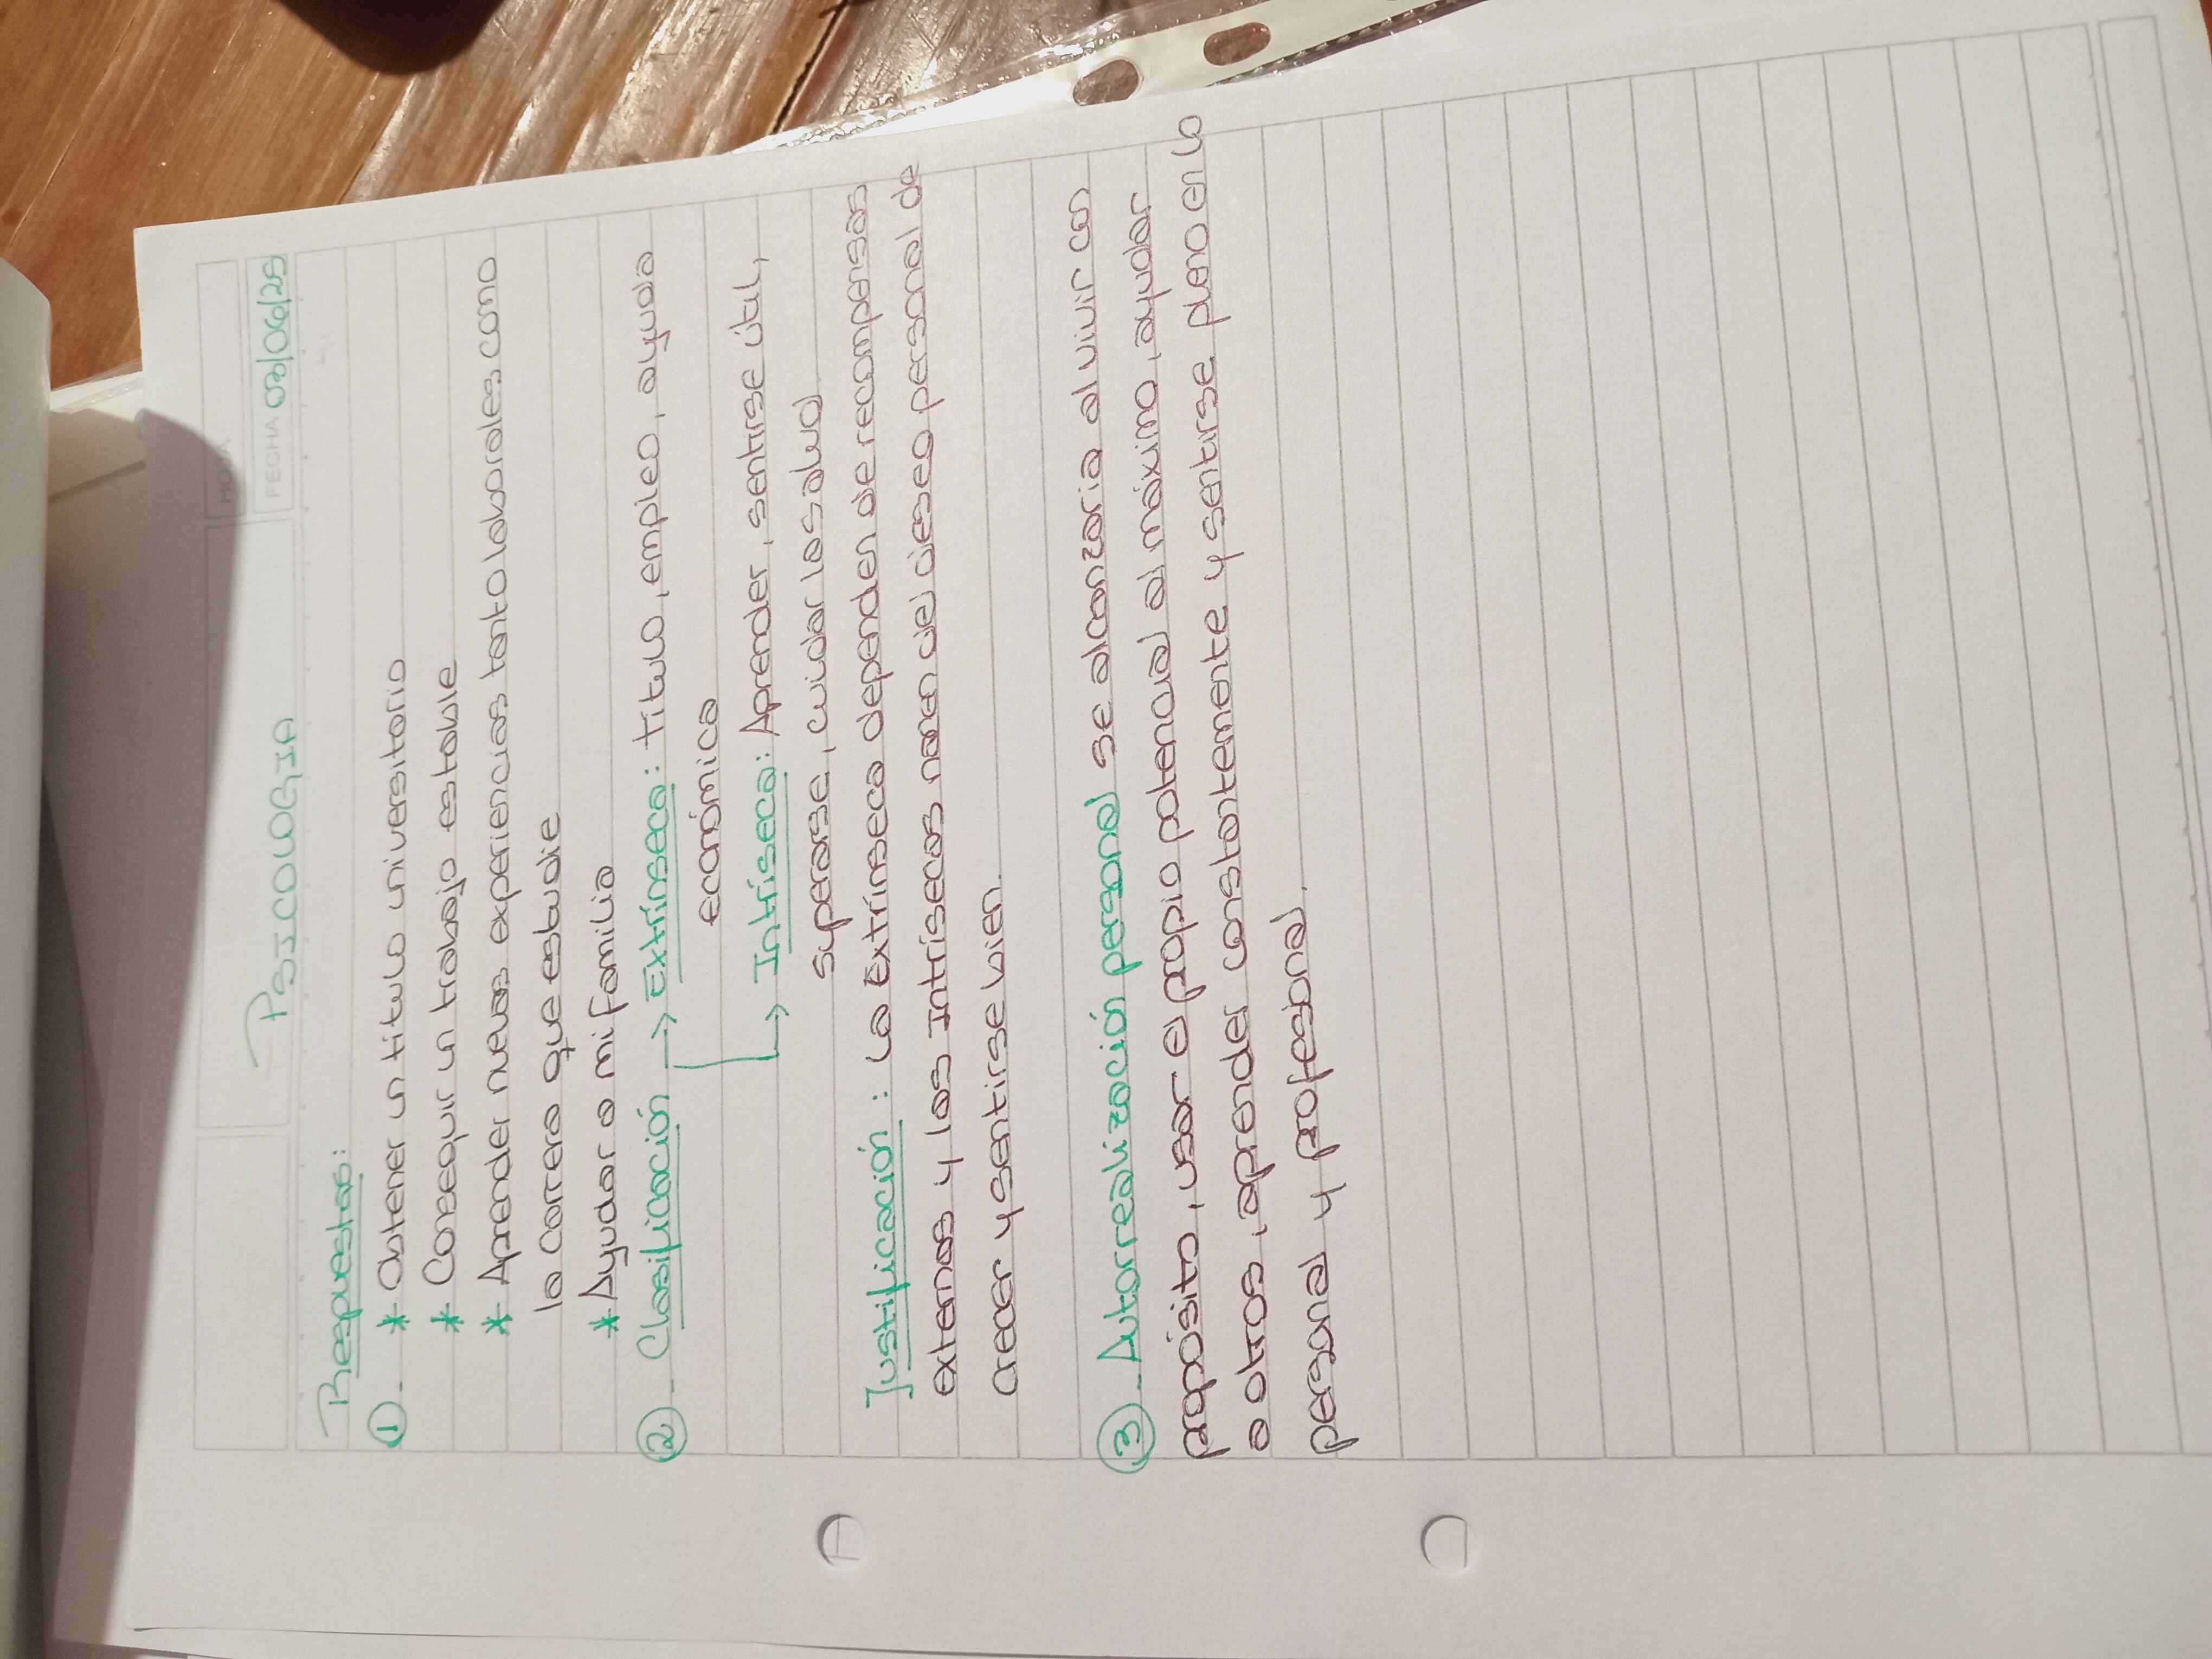 HOJA
PSICOLOGIA
FECHA 03/06/25
Respuestas:
1- * Obtener un título universitario
* Conseguir un trabajo estable
* Aprender nuevas experiencias tanto laborales como
la carrera que estudie
* Ayudar a mi familia
2- Clasificación → Extrínseca: título, empleo, ayuda
económica
→ Intríseca: Aprender, sentirse útil,
superarse, cuidar la salud
Justificación: La Extrínseca dependen de recompensas
externas y las Intrísecas nacen del deseo personal de
crecer y sentirse bien.
3- Autorrealización personal se alcanzaria al vivir con
propósito, usar el propio potencial al máximo, ayudar
a otros, aprender constantemente y sentirse pleno en lo
personal y profesional.